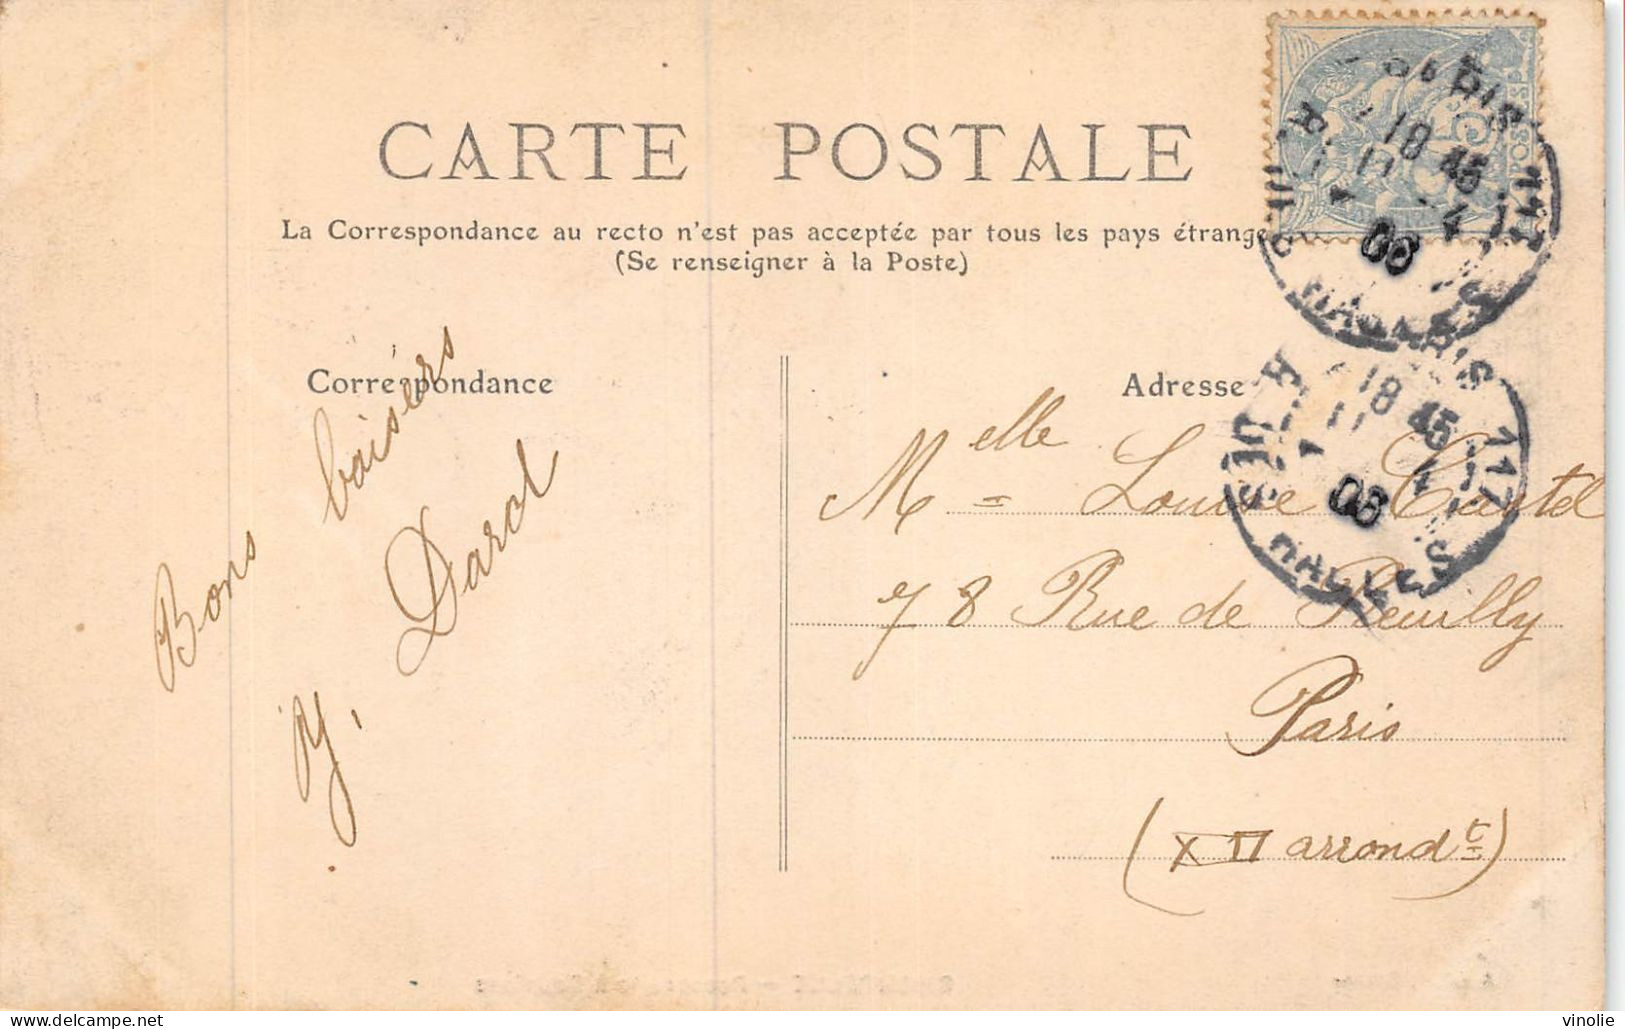 CARTE POSTALE
La Correspondance au recto n'est pas acceptée par tous les pays étrange
(Se renseigner à la Poste)
Correspondance
Bons baisers
Y. Darol
Adresse
Melle Louise Castel
78 Rue de Reuilly
Paris
(XII arrondt)
PARIS 117
18 45
11 - 4
06
PARIS 117
18 45
11 4
06
vinolie